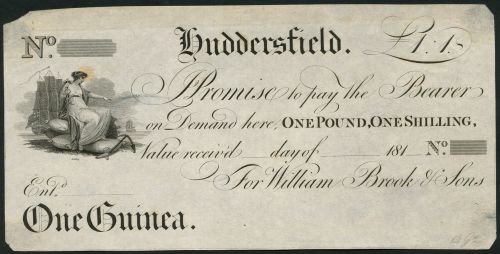 No. Huddersfield. £1:1s
I Promise to pay the Bearer
on Demand here, ONE POUND, ONE SHILLING,
Value receiv'd day of 181 No.
Entd. For William Brook & Sons
One Guinea.